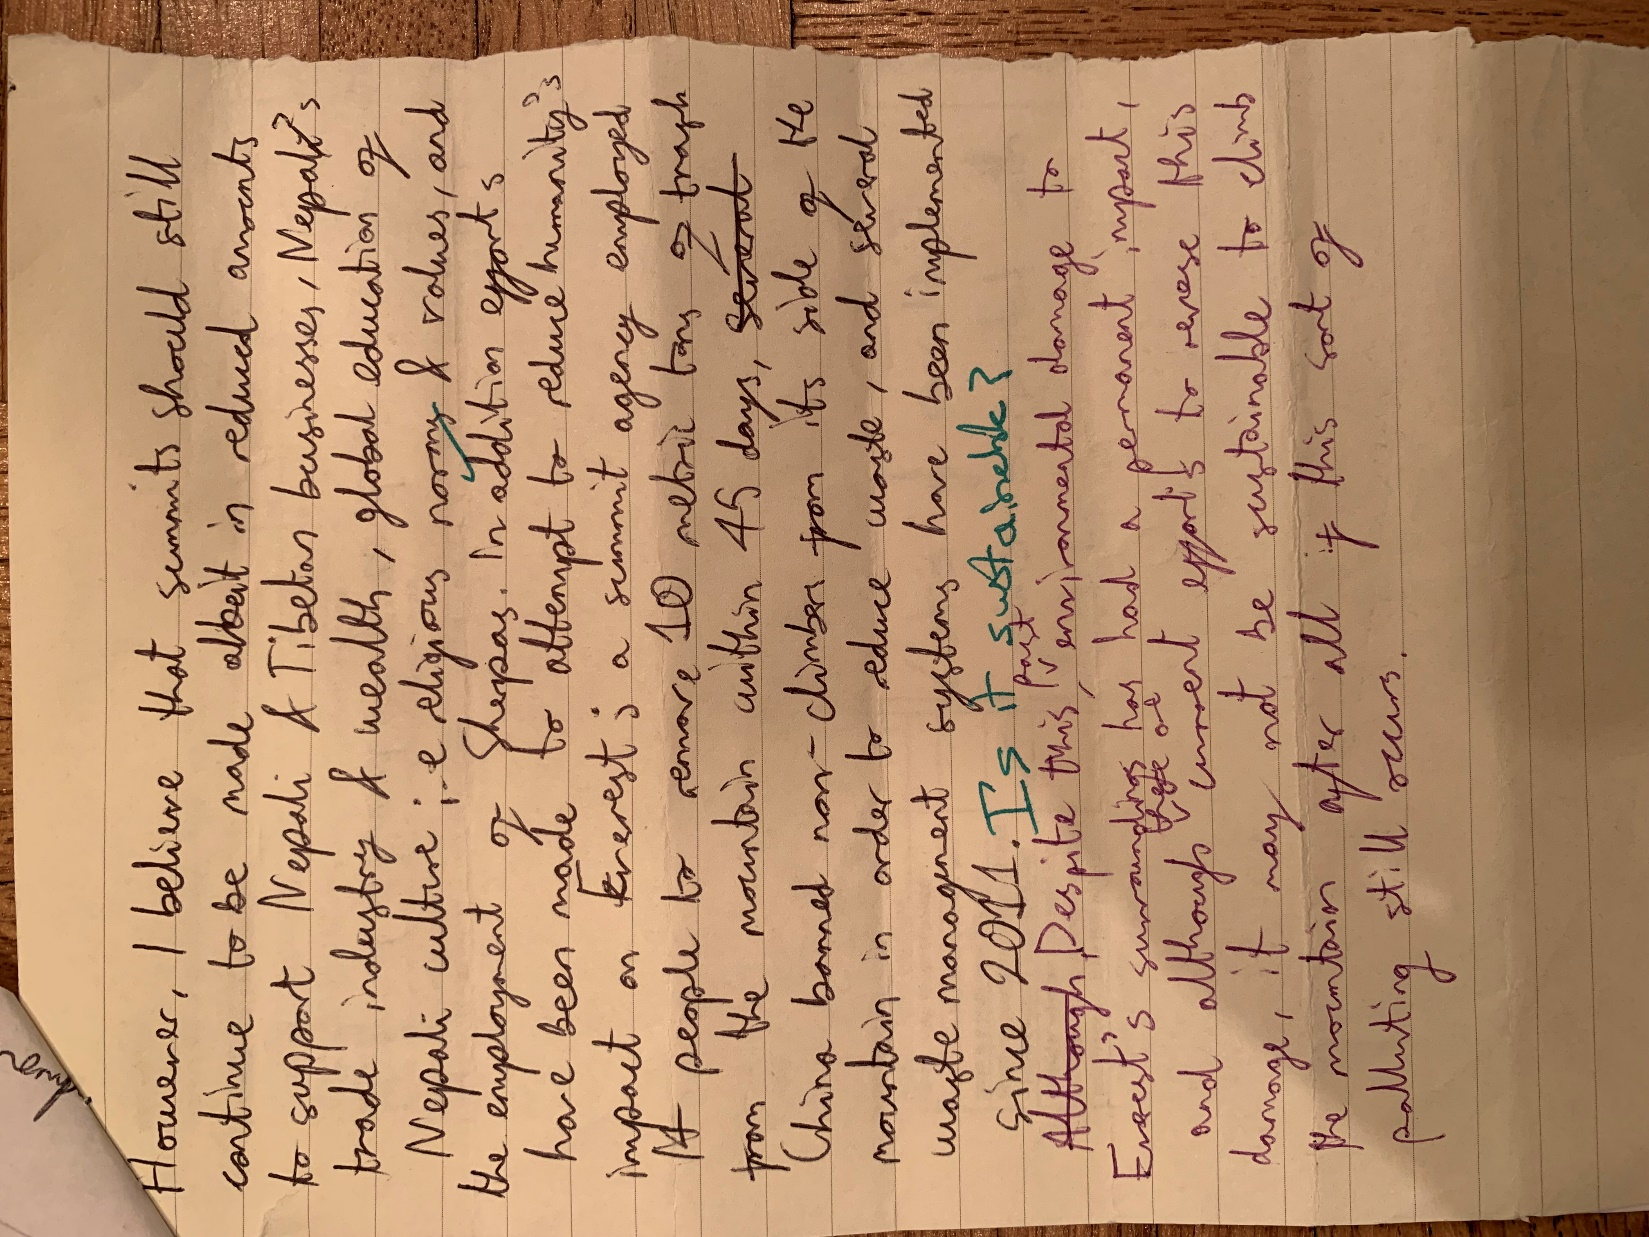 However, I believe that summits should still
continue to be made albeit in reduced amounts
to support Nepali & Tibetan businesses, Nepal's
trade industry & wealth, global education of
Nepali culture i.e religious norms & values, and
the employment of Sherpas. In addition efforts
have been made to attempt to reduce humanity's
impact on Everest; a summit agency employed
14 people to remove 10 metric tons of trash
from the mountain within 45 days, several
China banned non-climbers from its side of the
mountain in order to reduce waste, and several
waste management systems have been implemented
since 2011. Is it sustainable?
Although Despite this, past environmental damage to
Everest's surroundings has had a permanent impact,
and although there are current efforts to reverse this
damage, it may not be sustainable to climb
the mountain after all if this sort of
polluting still occurs.